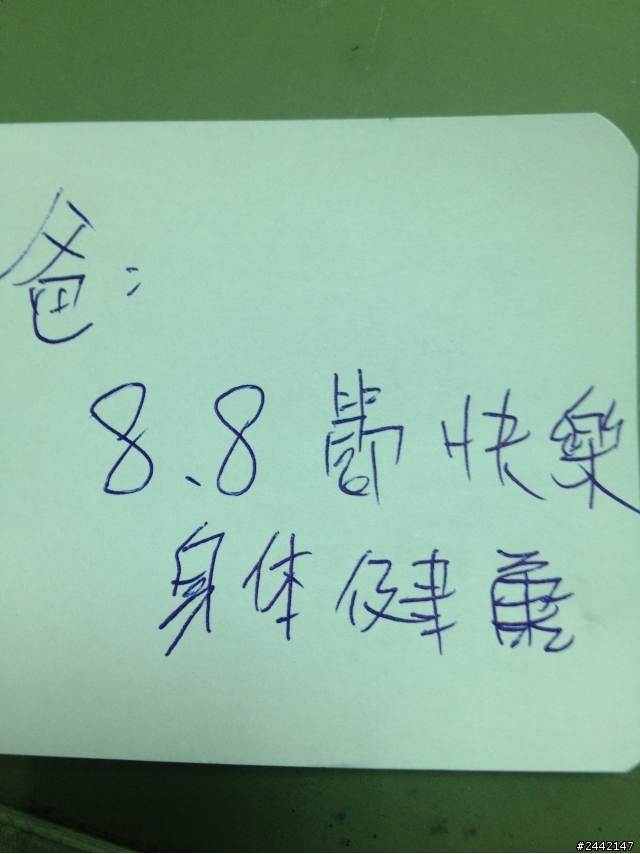 爸:
8.8 節快樂
身体健康
#2442147